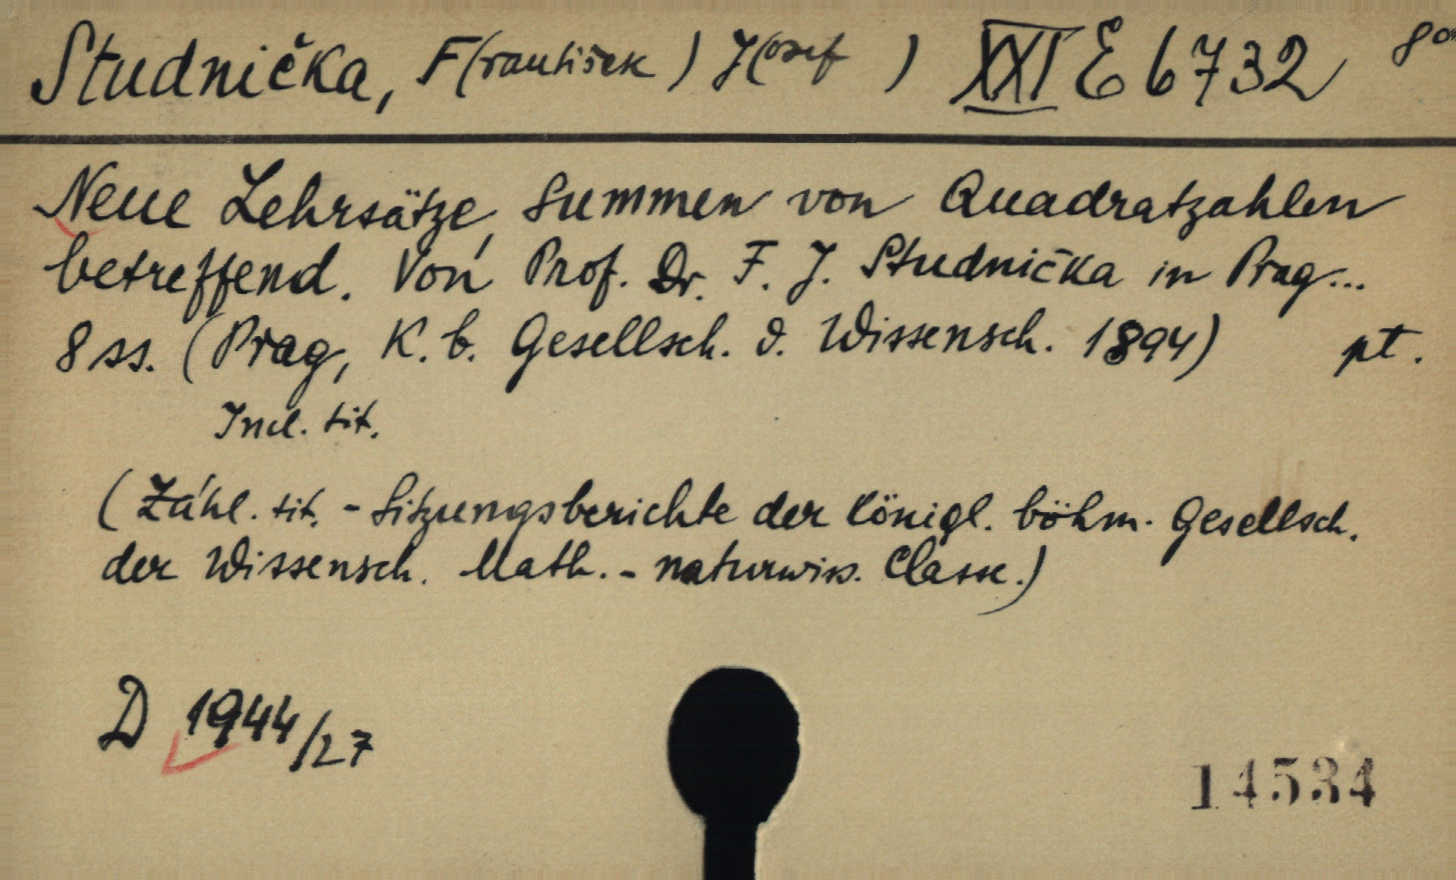 Studnička, F(rantišek) J(osef ) XXI E 6732 8°
Neue Lehrsätze, Summen von Quadratzahlen
betreffend. Von Prof. Dr. F. J. Studnička in Prag...
8 ss. (Prag, K. b. Gesellsch. d. Wissensch. 1894) pt.
Incl. tit.
(Záhl. tit. - Sitzungsberichte der königl. böhm. Gesellsch.
der Wissensch. Math. - naturwiss. Classe.)
D 1944/27
14534